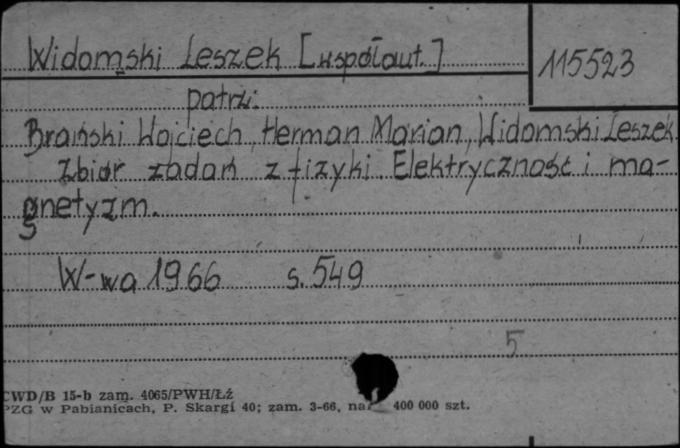 Widomski Leszek [współaut.]
115523
patrz:
Brański Wojciech, Herman Marian, Widomski Leszek
Zbiór zadań z fizyki. Elektryczność i ma-
gnetyzm.
W-wa 1966 s. 549
5
CWD/B 15-b zam. 4065/PWH/Łź
PZG w Pabianicach, P. Skargi 40; zam. 3-66, 400 000 szt.